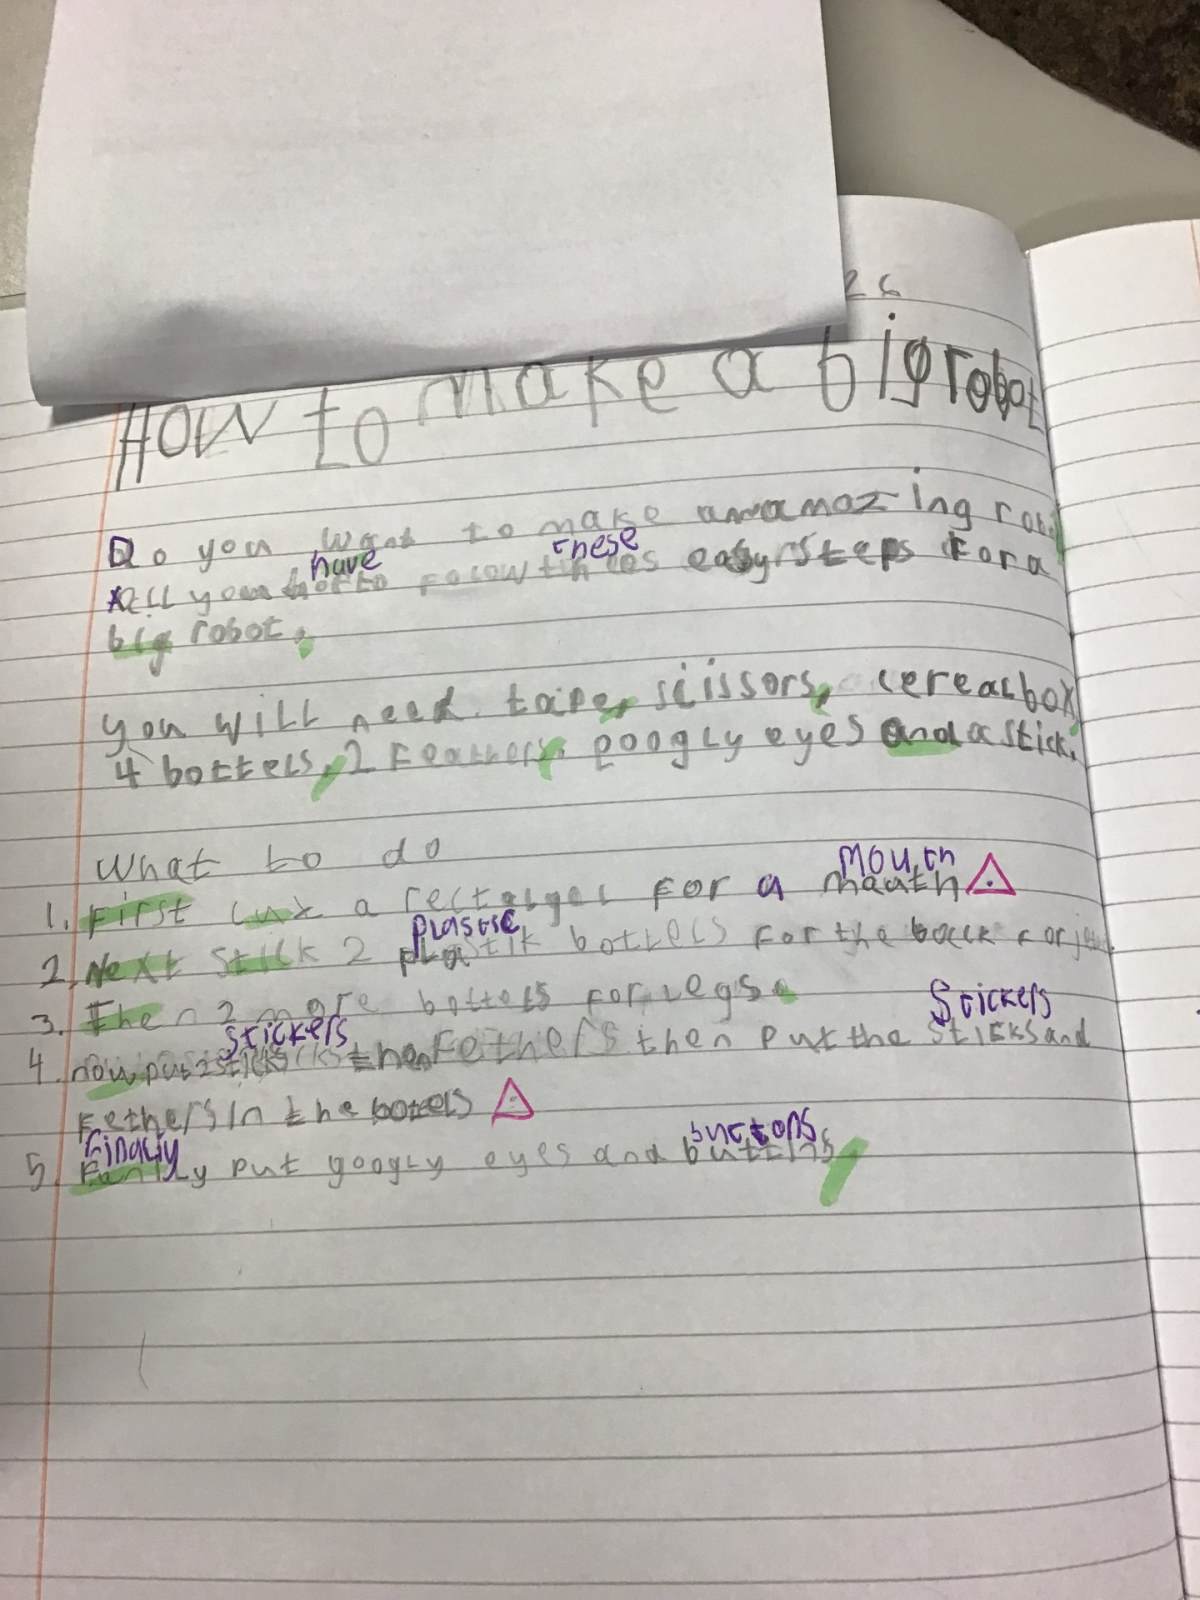 26
How to make a big robot
Do you want to make an amazing
have these
all you to folow thes easy steps for a
big robot.
you will need tape, scissors, cereal box,
4 bottels, 2 Feathers, googly eyes and a stick.
What to do
mouth
1. First cut a for a mauth
plastic
2. Next stick 2 plastik bottels for the back for
3. Then 2 more bottels for legs.
stickers Stickers
4. now put 2 then Fethers then put the sticks and
Fethers in the bottels
Finally buttons
5. put googly eyes and